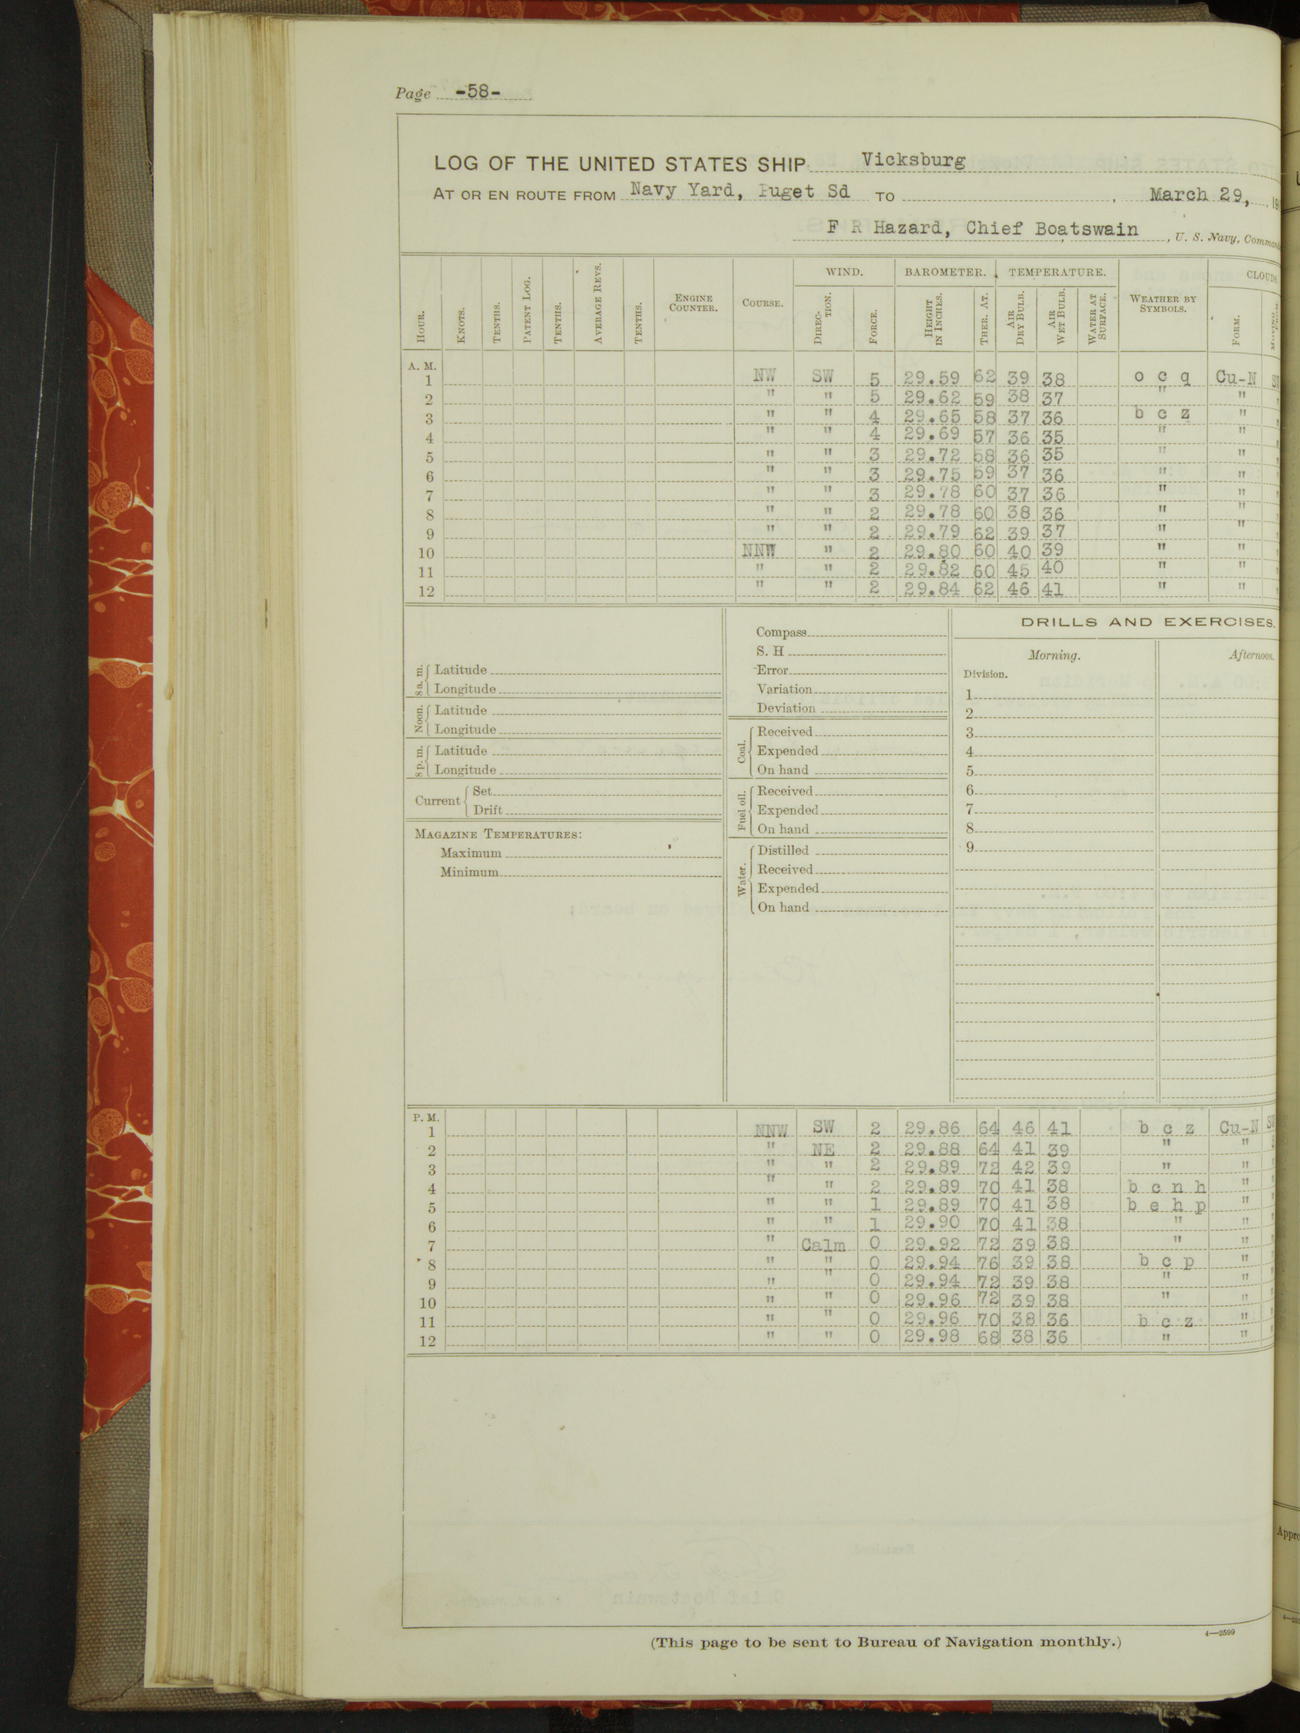 Page -58-
LOG OF THE UNITED STATES SHIP Vicksburg
AT OR EN ROUTE FROM Navy Yard, Puget Sd TO , March 29, 19
F R Hazard, Chief Boatswain , U. S. Navy,
WIND. BAROMETER. TEMPERATURE.
HOUR. KNOTS. TENTHS. PATENT LOG. TENTHS. AVERAGE REVS. TENTHS. ENGINE COUNTER. COURSE. DIRECTION. FORCE. HEIGHT IN INCHES. THER. AT. AIR DRY BULB. AIR WET BULB. WATER AT SURFACE. WEATHER BY SYMBOLS. FORM.
A. M.
1 NW SW 5 29.59 62 39 38 o c q Cu-N
2 " " 5 29.62 59 38 37 " "
3 " " 4 29.65 58 37 36 b c z "
4 " " 4 29.69 57 36 35 " "
5 " " 3 29.72 58 36 35 " "
6 " " 3 29.75 59 37 36 " "
7 " " 3 29.78 60 37 36 " "
8 " " 2 29.78 60 38 36 " "
9 " " 2 29.79 62 39 37 " "
10 NNW " 2 29.80 60 40 39 " "
11 " " 2 29.82 60 45 40 " "
12 " " 2 29.84 62 46 41 " "
8 a. m. Latitude
Longitude
Noon. Latitude
Longitude
8 p. m. Latitude
Longitude
Current Set
Drift
MAGAZINE TEMPERATURES:
Maximum
Minimum
Compass
S. H
Error
Variation
Deviation
Coal. Received
Expended
On hand
Fuel oil. Received
Expended
On hand
Water. Distilled
Received
Expended
On hand
DRILLS AND EXERCISES.
Morning. Afternoon.
Division.
1
2
3
4
5
6
7
8
9
P. M.
1 NNW SW 2 29.86 64 46 41 b c z Cu-N
2 " NE 2 29.88 64 41 39 " "
3 " " 2 29.89 72 42 39 " "
4 " " 2 29.89 70 41 38 b c n h "
5 " " 1 29.89 70 41 38 b e h p "
6 " " 1 29.90 70 41 38 " "
7 " Calm 0 29.92 72 39 38 " "
8 " " 0 29.94 76 39 38 b c p "
9 " " 0 29.94 72 39 38 " "
10 " " 0 29.96 72 39 38 " "
11 " " 0 29.96 70 38 36 b c z "
12 " " 0 29.98 68 38 36 " "
(This page to be sent to Bureau of Navigation monthly.)
4—2599